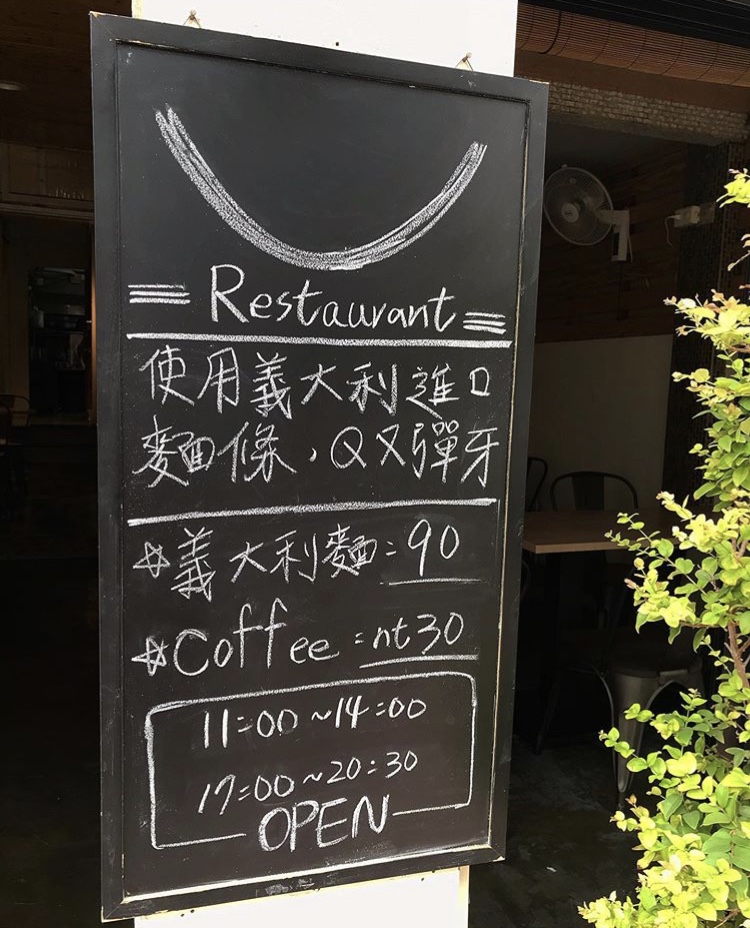 Restaurant
使用義大利進口
麵條，Q又彈牙
☆義大利麵=90
☆Coffee=nt30
11:00~14:00
17:00~20:30
OPEN